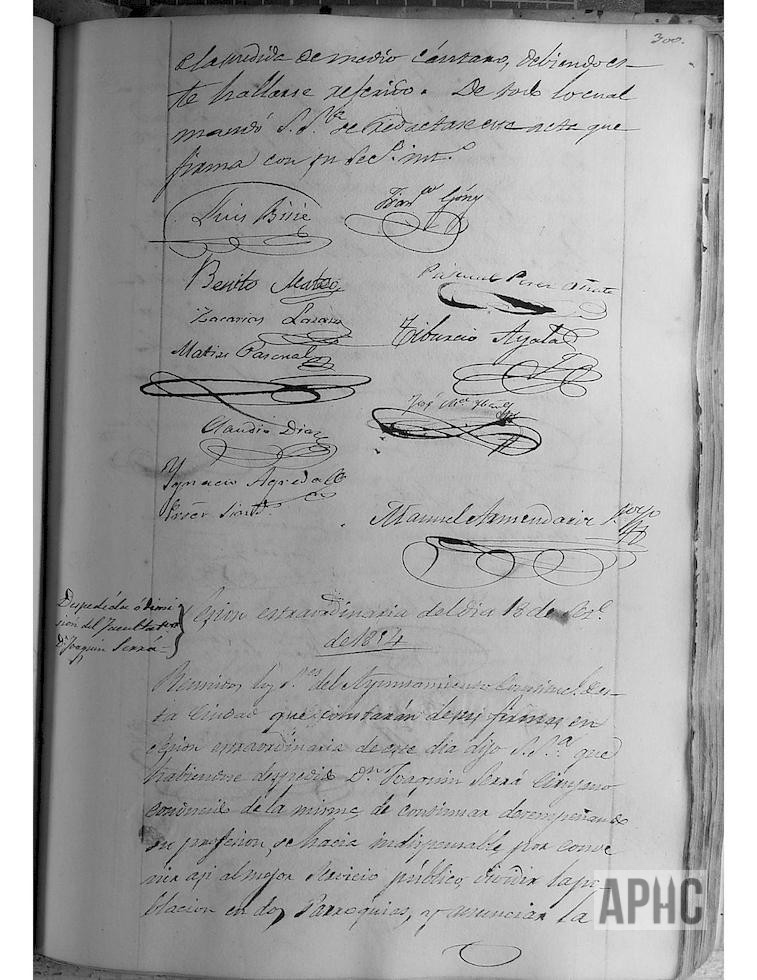 300.
de la medida de medio cántaro, debiendo es-
te hallarse referido. De todo lo cual
mandó S.Sª se redactase este acta que
firma con su Secº intº
Luis
Franco
Benito Mateo
Pascual Perez Oñate
Zacarias Lazaro
Tiburcio Ayala
Matias Pascual
José Mª
Claudio Diaz
Ygnacio Agreda
Procer Sindº
Manuel Armendariz Srio
Despedida ó dimi
sion del Facultativo
Dn Joaquin Serrá
Sesion estraordinaria del dia 18 de
de 1854
Reunidos los Sres del Ayuntamiento Constinal des-
ta Ciudad que constarán de sus firmas en
sesion estraordinaria de este dia dijo S.Sª que
habiendose despedido Dn Joaquin Serrá Cirujano
de la misma, de continuar desempeñando
su profesion, se hacia indispensable por conve
nir asi al mejor servicio público, dividir la po-
blacion en dos Parroquias, y anunciar la
APHC